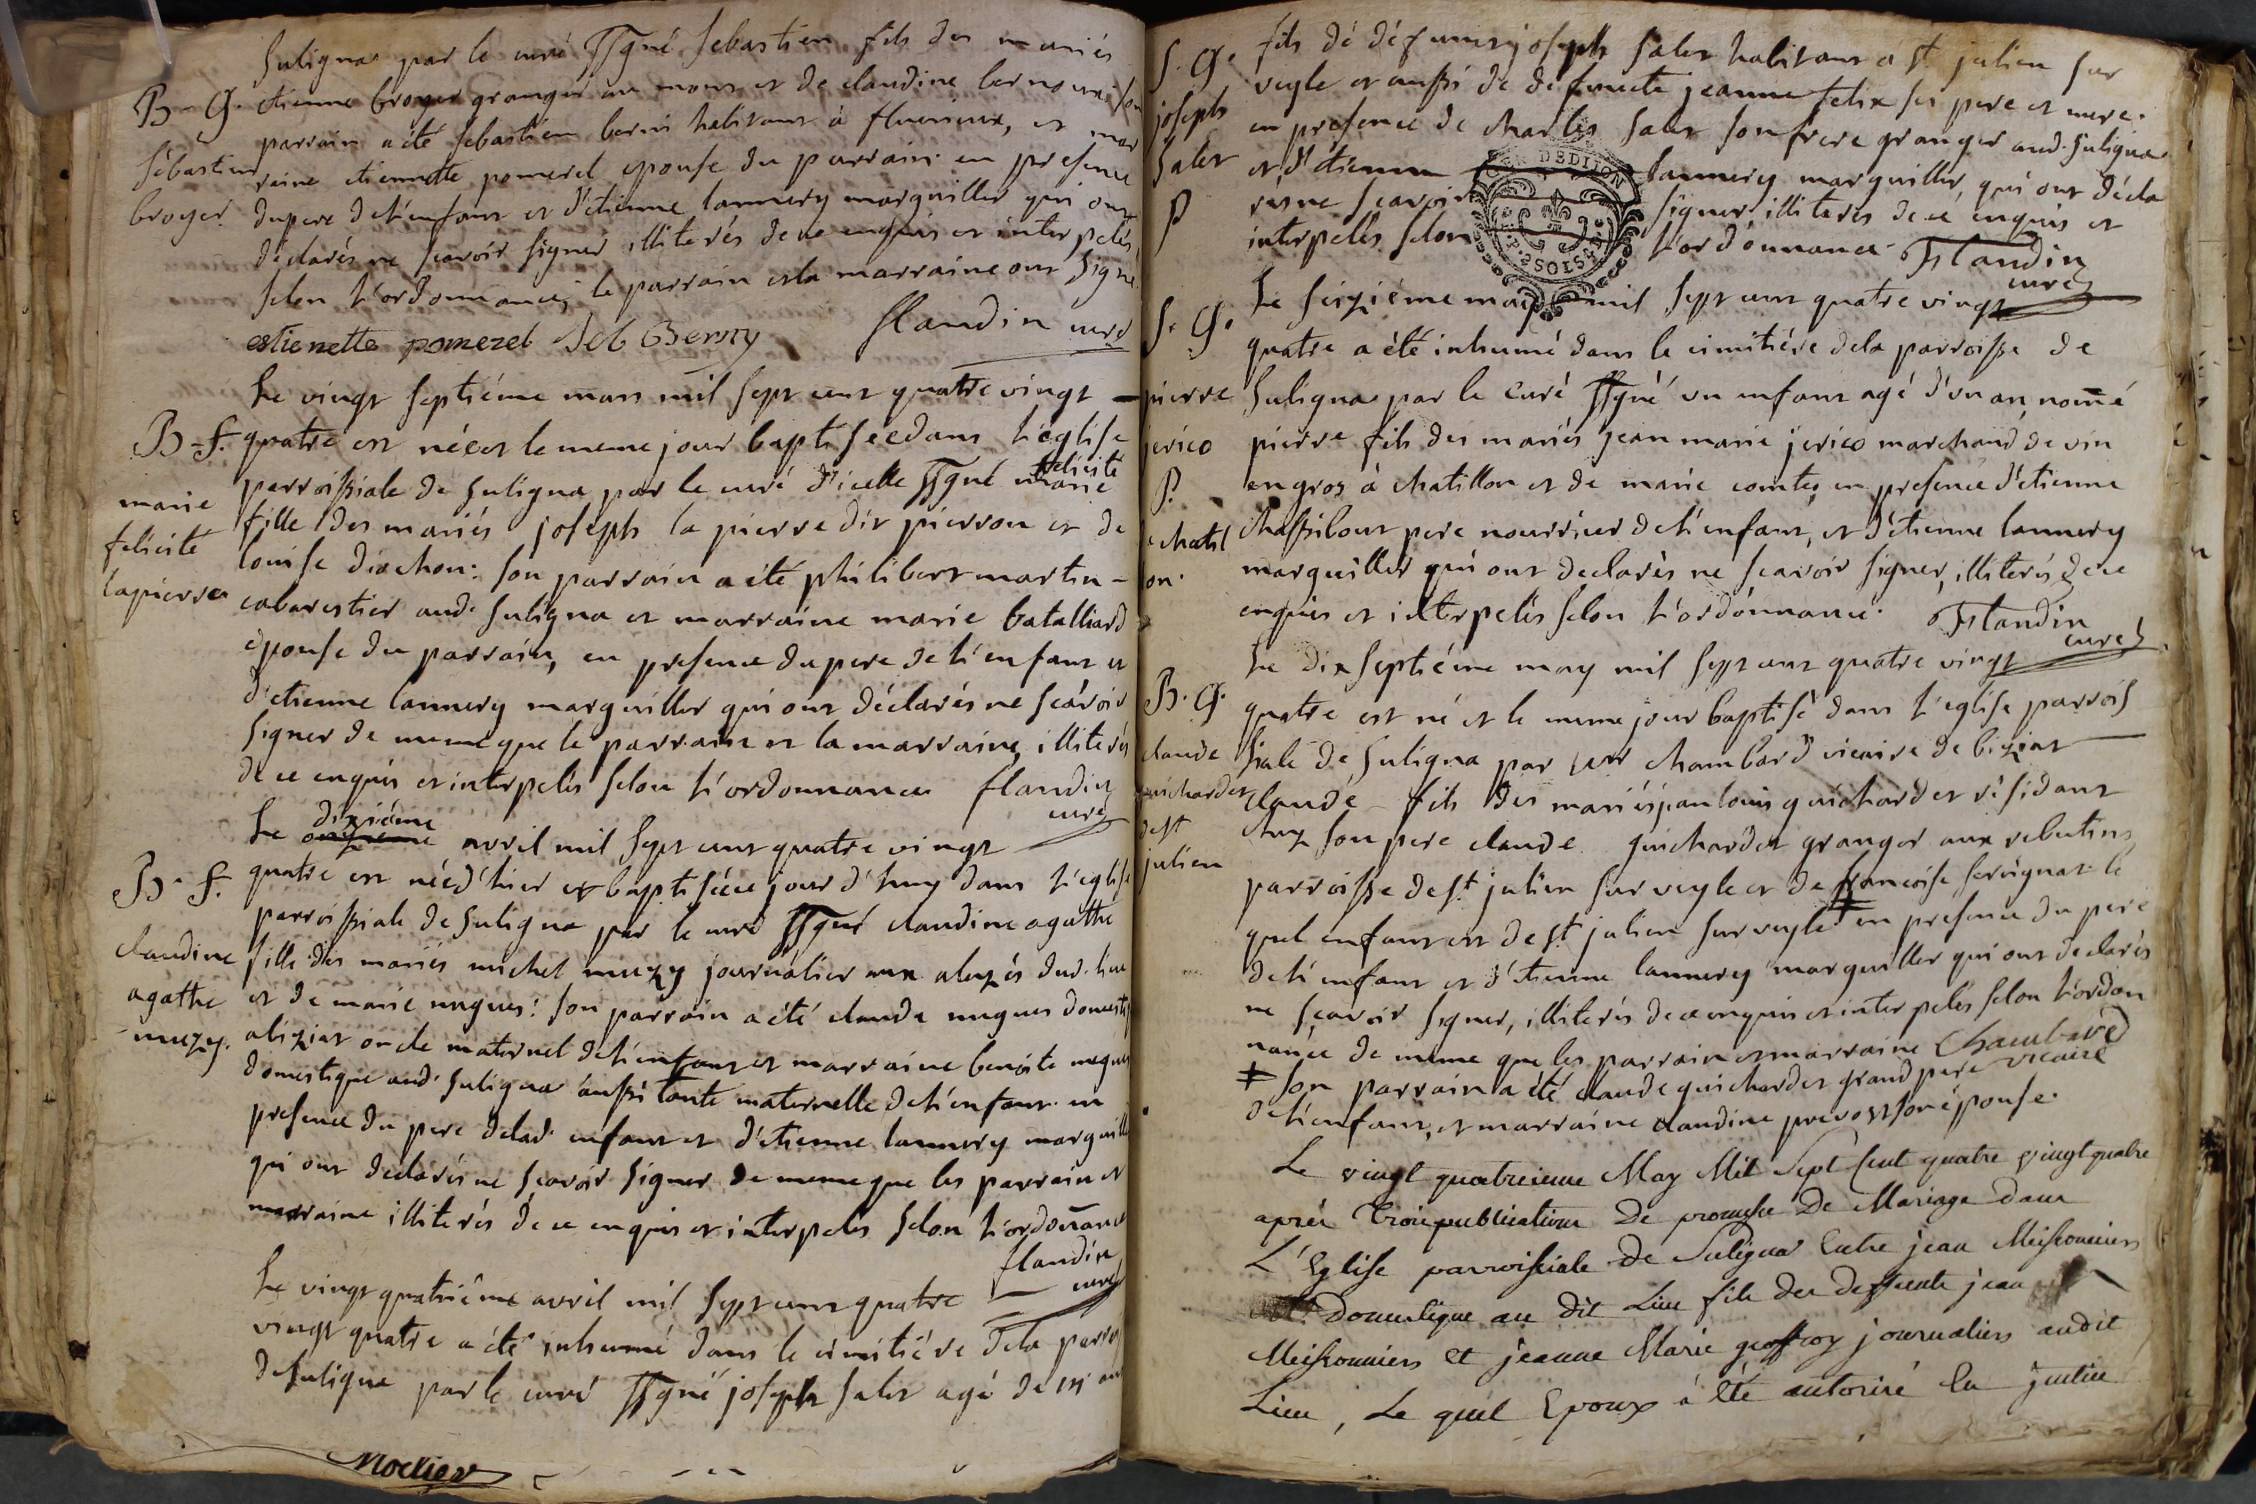 Suligna par le curé ssgné Sebastien fils des mariés
B G. etienne broyer granger au mons et de claudine bernoux son
parrain a été sebastien berni habitant à flurieux, et mar
Sébastien raine etiennette pomerel epouse du parrain en presence
broyer. du pere de l'enfant et d'étienne lannery marguiller qui ont
déclarés ne scavoir signer illiterés de ce enquis et interpelés
selon l'ordonnance, le parrain et la marraine ont signé
estienette pomerel Seb Berny flandin curé
Le vingt septiéme mars mil sept cent quatre vingt
B-f. quatre est née et le meme jour baptisée dans l'eglise
parroissiale de Suligna par le curé d'icelle ssgné marie felicité
marie fille des mariés joseph la pierre dit pierron et de
felicité louise dixchon: son parrain a été philibert martin
lapierre cabarestier aud. Suligna et marraine marie bataillard
epouse du parrain, en presence du pere de l'enfant et
d'etienne lannery marguiller qui ont déclarés ne scavoir
signer de meme que le parrain et la marraine, illiterés
de ce enquis et interpelés selon l'ordonnance flandin
curé
Le dixiéme avril mil sept cent quatre vingt
B. f. quatre est née d'hier et baptisée ce jour d'huy dans l'eglise
parroissiale de Suligna par le curé ssgné claudine agathe
claudine fille des mariés michel muzy journalier aux aluzés dud. lieu
agathe et de marie nugues: son parrain a été claude nugues domesti
muzy. a biziat oncle maternel de l'enfant et marraine benoite nugues
domestique aud. Suligna aussi tante maternelle de l'enfant en
presence du pere de lad. enfant et d'etienne lannery marguill
qui ont declarés ne scavoir signer de meme que les parrain et
marraine illiterés de ce enquis et interpelés selon l'ordonance
flandin
curé
Le vingt quatriéme avril mil sept cent quatre
vingt quatre a été inhumé dans le cimitiére de la parroi
de Suligna par le curé ssgné joseph Salet agé de
fils de défunct joseph Salet habitant a St julien sur
S. G. veyle et aussi de defuncte jeanne felix ses pere et mere.
joseph en presence de charles Salet son frere granger aud. Suligna
Salet et d'étienne lannery marguiller, qui ont décla
P rés ne scavoir signer illiterés de ce enquis et
interpellés selon l'ordonnance. Flandin
curé
Le seiziéme may mil sept cent quatre vingt
S. G. quatre a été inhumé dans le cimitiére de la parroisse de
pierre Suligna par le curé ssgné un enfant agé d'un an, nom̄é
jerico pierre fils des mariés jean marie jerico marchand de vin
P. en gros à chatillon et de marie comte, en presence d'etienne
chatil chassibout pere nourricier de l'enfant, et d'étienne lannery
on. marguiller qui ont declarés ne scavoir signer, illiterés de ce
enquis et interpelés selon l'ordonnance. Flandin
curé
Le dix septiéme may mil sept cent quatre vingt
B. G. quatre est né et le meme jour baptisé dans l'eglise parrois
claude siale de Suligna par Mr chambard vicaire de biziat
guichardet claude fils des mariés jean louis guichardet résidant
de St chez son pere claude guichardet granger aux rebutins
julien parroisse de St. julien sur veyle et de francoise servignat le
quel enfant est de St julien sur veyle ‡ en presence du pere
de l'enfant et d'étienne lannery marguiller qui ont declarés
ne scavoir signer, illiterés de ce enquis et interpelés selon l'ordon
nance de meme que les parrain et marraine Chambard
vicaire
‡ son parrain a été claude guichardet grand pere
de l'enfant, et marraine claudine prevost son épouse.
Le vingt quatrieme May Mil Sept Cent quatre vingt quatre
après trois publications De promesse De Mariage dans
L'Eglise parroissiale De Suligna Entre jean Meissonniers
Domestique au dit Lieu fils des deffunts jean
Meissonniers et jeanne Marie geoffroy journaliers audit
Lieu, Le quel Epoux a été autorisé En justice
Moclier
COUR DE DIJON
SOLS